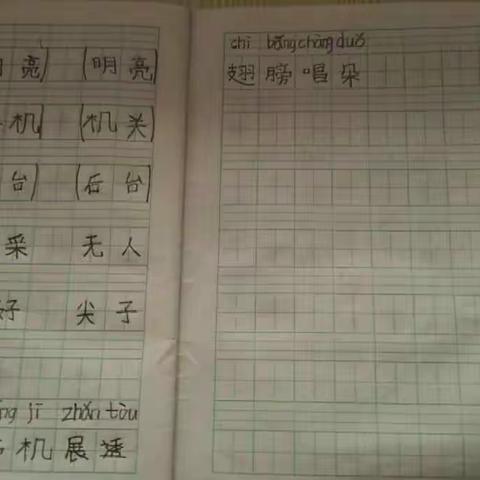 亮) (明亮)
机) (机关)
台) (后台)
采 无人
好 尖子
jī zhǎn tòu
机展透
chì bǎng chàng duǒ
翅膀唱朵